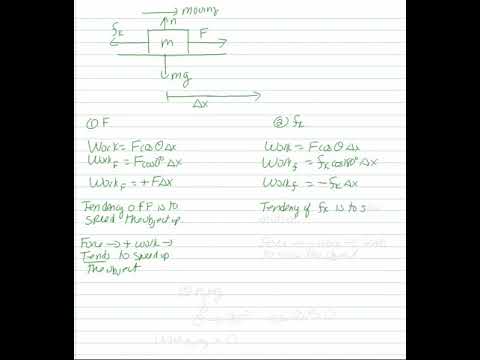 moving
n
fk
m
F
mg
Δx
① F
Work = Fcosθ Δx
Work_F = Fcos0° Δx
Work_F = +FΔx
Tendency of F is to
speed the object up
Force → + work →
Tends to speed up
the object
② fk
Work = Fcosθ Δx
Work_f = fk cos180° Δx
Work_f = -fk Δx
Tendency of fk is to s